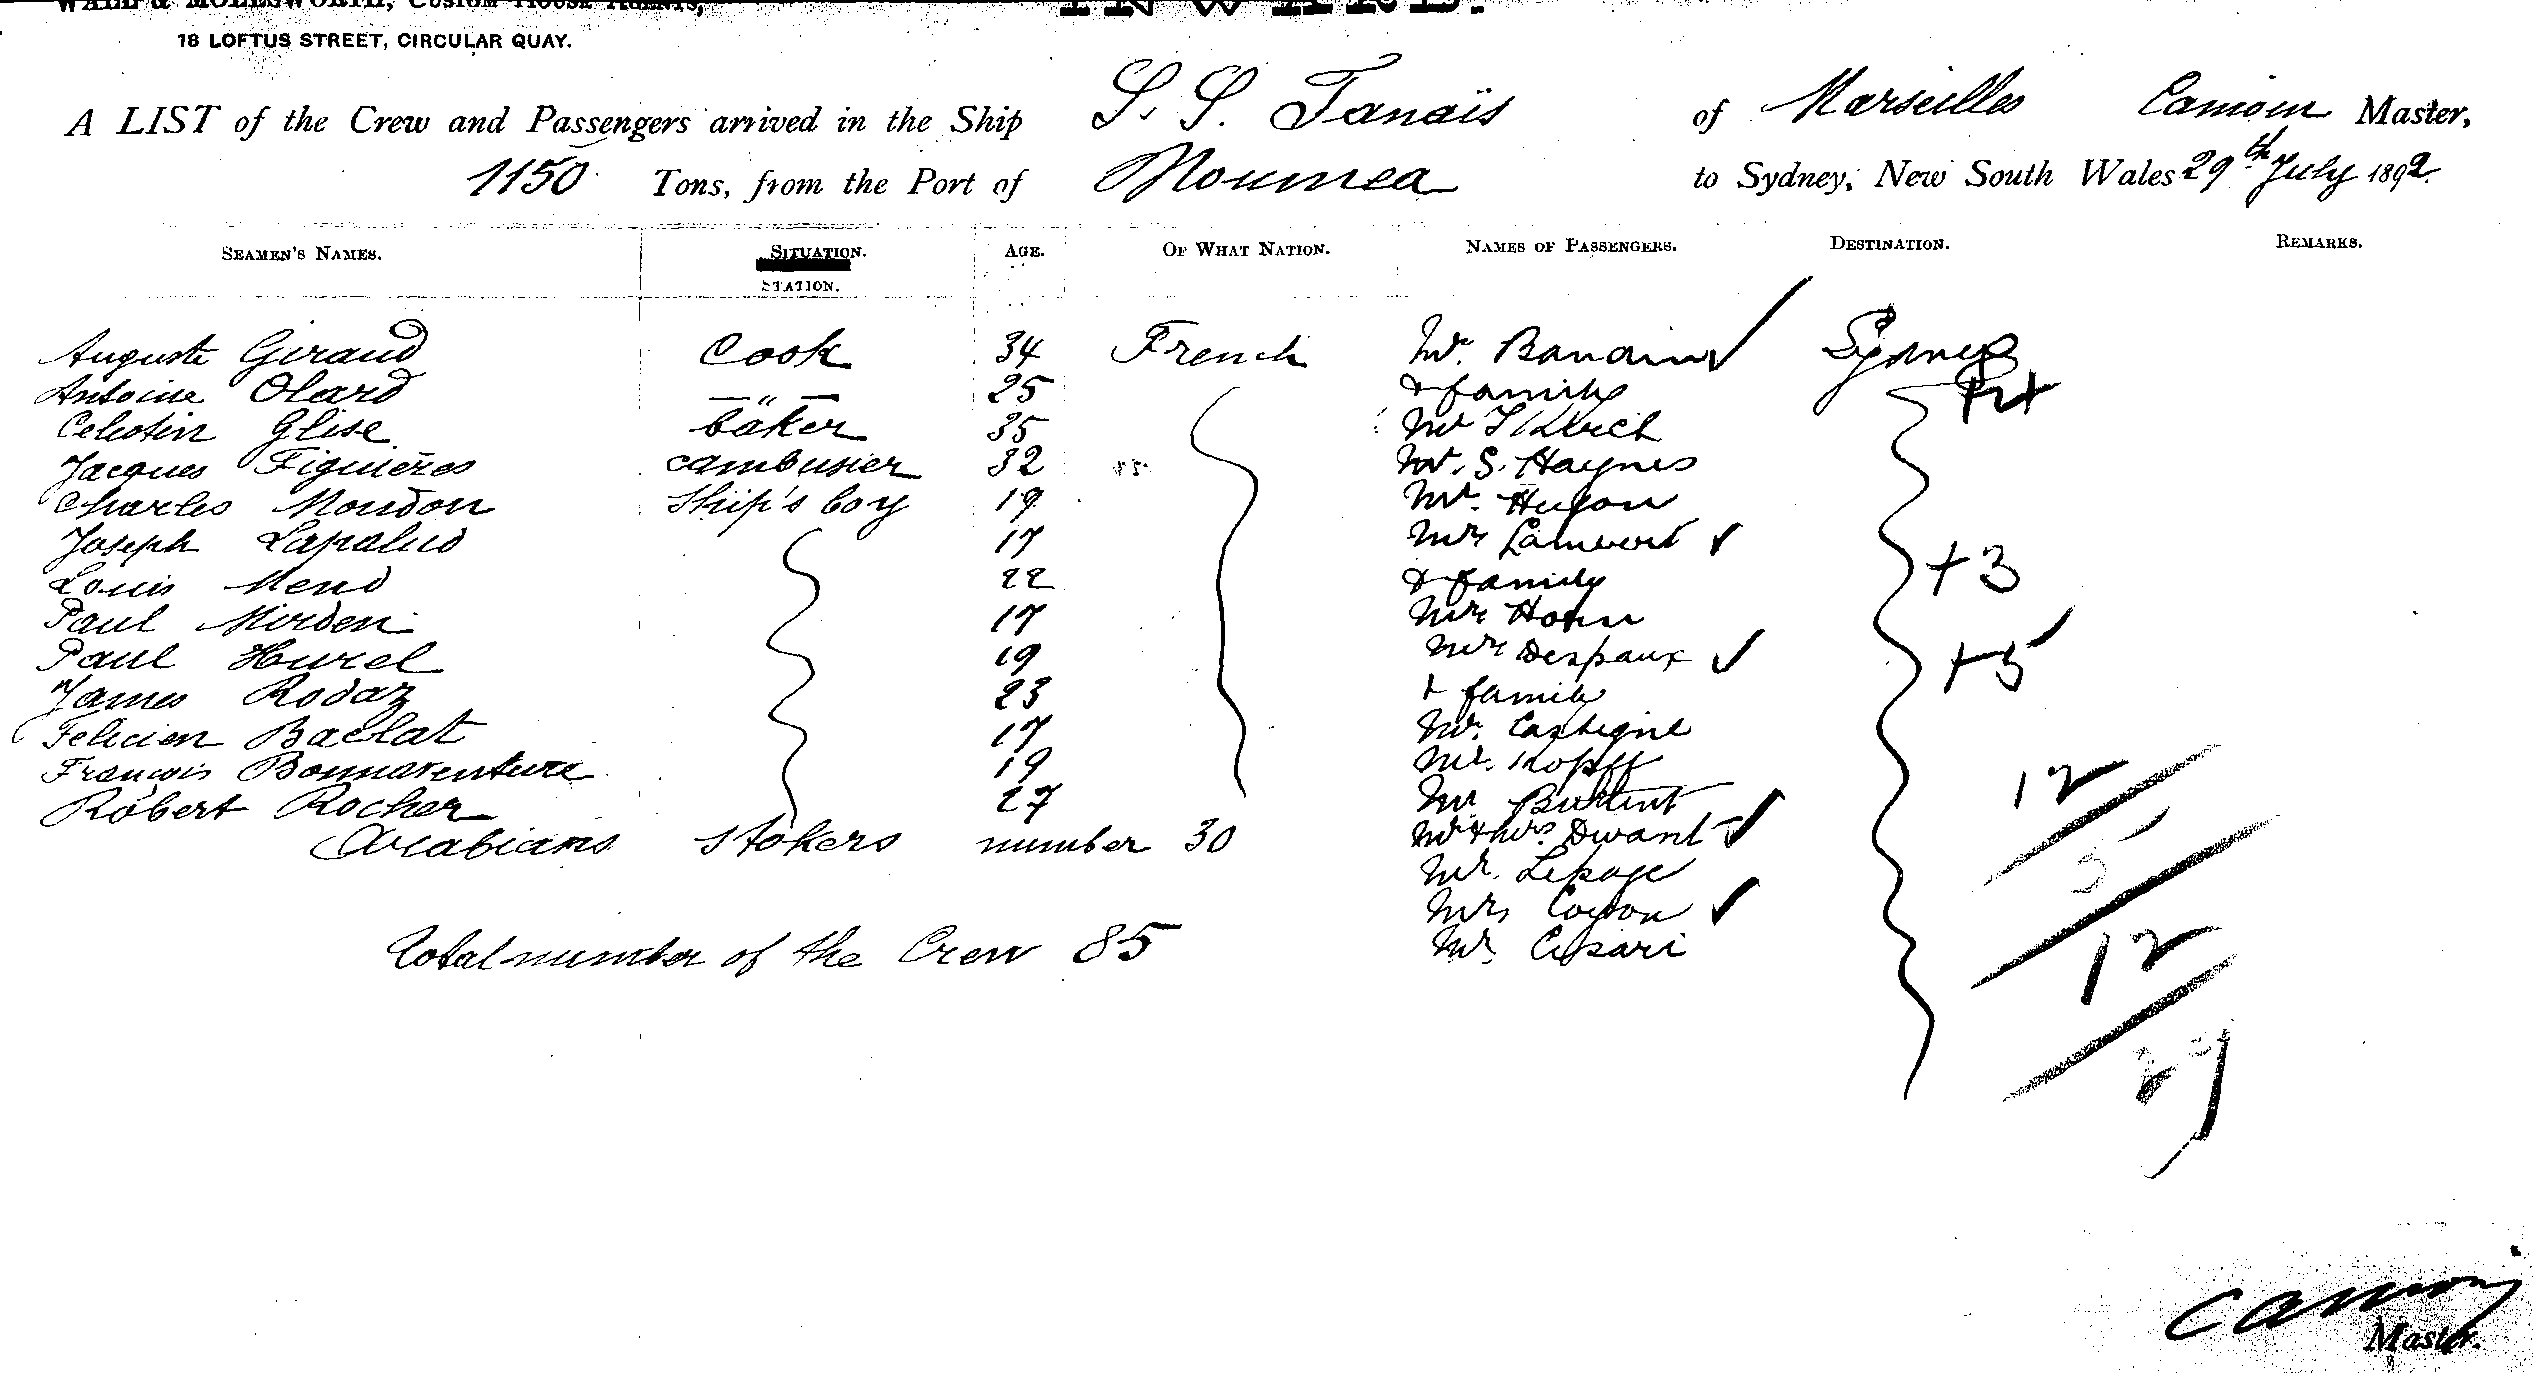 WALL & MOLESWORTH, CUSTOM HOUSE AGENTS,
INWARD.
18 LOFTUS STREET, CIRCULAR QUAY.
A LIST of the Crew and Passengers arrived in the Ship S. S. Tanaïs of Marseilles Camoin Master,
1150 Tons, from the Port of Noumea to Sydney, New South Wales 29th July 1892.
SEAMEN'S NAMES. SITUATION. AGE. OF WHAT NATION. NAMES OF PASSENGERS. DESTINATION. REMARKS.
STATION.
Auguste Giraud Cook 34 French Mr. Sydney
Antoine Olard —„— 25 & family
Celestin Glise baker 35 Mr
Jacques Figuières cambusier 32 Mr. S. Haynes
Charles Moudon Ship's boy 19 Mr. Hugon
Joseph Lapalud 17 Mrs Lambert
Louis Meno 22 & family +3
Paul Mirden 17 Mrs Horn
Paul Hurel 19 Mrs Despaux +5
James Rodaz 23 & family
Felicien Baclat 17 Mr. Castegne
François Bonnaventure 19 Mr. Kopff
Robert Rocher 27 Mr 12
Arabians Stokers number 30 Mr & Mrs.
Mr. Lepage
Mrs
total number of the Crew 85 Mr. Cesari 12
Master.